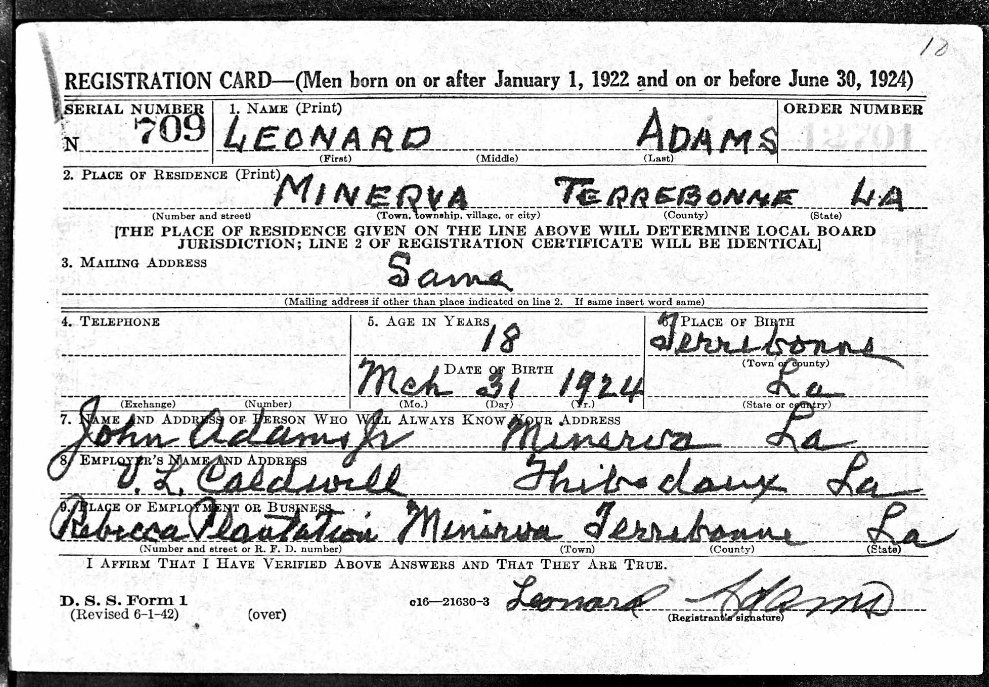 10
REGISTRATION CARD—(Men born on or after January 1, 1922 and on or before June 30, 1924)
SERIAL NUMBER 1. NAME (Print) ORDER NUMBER
N 709 LEONARD ADAMS
(First) (Middle) (Last)
2. PLACE OF RESIDENCE (Print)
MINERVA TERREBONNE LA
(Number and street) (Town, township, village, or city) (County) (State)
[THE PLACE OF RESIDENCE GIVEN ON THE LINE ABOVE WILL DETERMINE LOCAL BOARD
JURISDICTION; LINE 2 OF REGISTRATION CERTIFICATE WILL BE IDENTICAL]
3. MAILING ADDRESS
Same
(Mailing address if other than place indicated on line 2. If same insert word same)
4. TELEPHONE 5. AGE IN YEARS 6. PLACE OF BIRTH
18 Terrebonne
DATE OF BIRTH (Town or county)
Mch 31 1924 La
(Exchange) (Number) (Mo.) (Day) (Yr.) (State or country)
7. NAME AND ADDRESS OF PERSON WHO WILL ALWAYS KNOW YOUR ADDRESS
John Adams Jr Minerva La
8. EMPLOYER'S NAME AND ADDRESS
V. L. Caldwell Thibodaux La
9. PLACE OF EMPLOYMENT OR BUSINESS
Rebecca Plantation Minerva Terrebonne La
(Number and street or R. F. D. number) (Town) (County) (State)
I AFFIRM THAT I HAVE VERIFIED ABOVE ANSWERS AND THAT THEY ARE TRUE.
D. S. S. Form 1
(Revised 6-1-42) (over) c16—21630-3 Leonard Adams
(Registrant's signature)